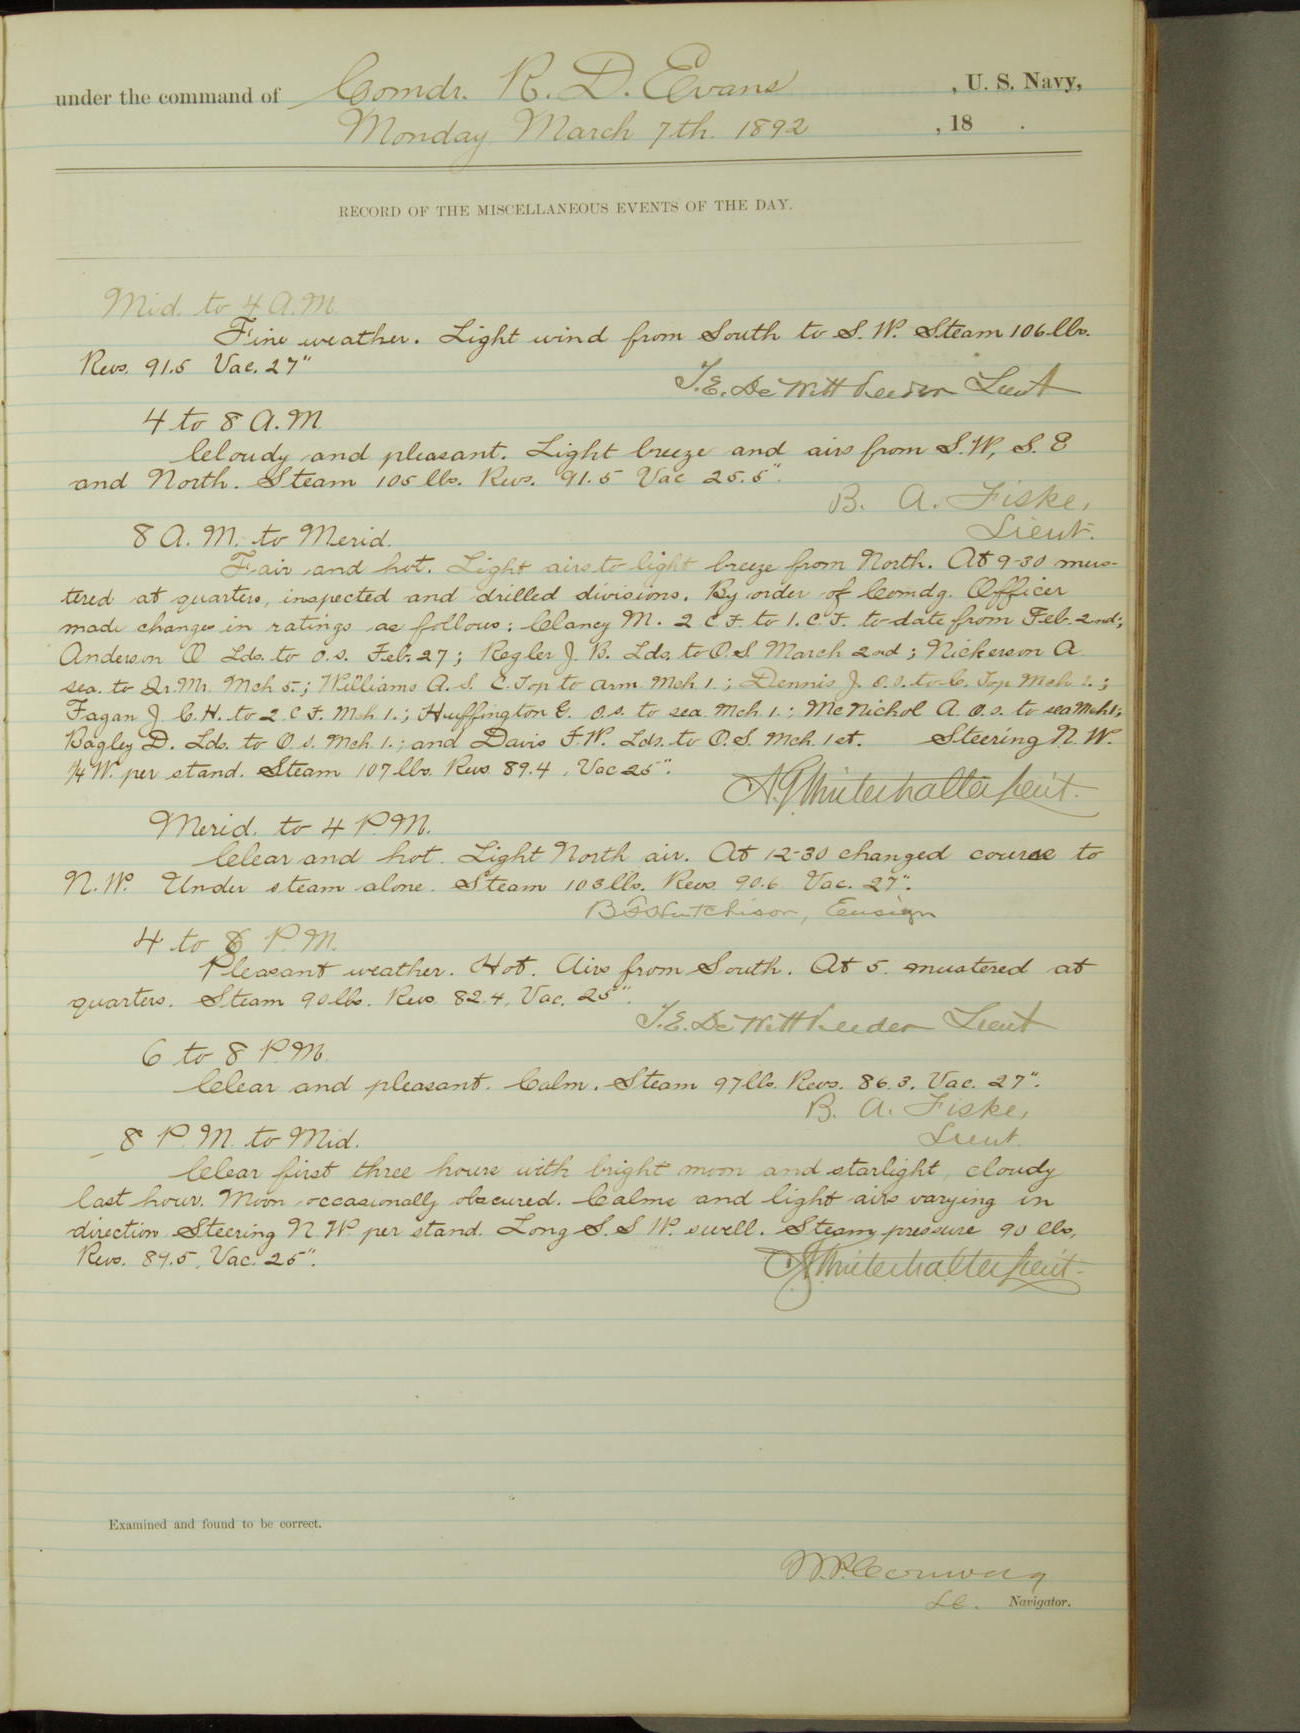 under the command of Comdr. R. D. Evans , U. S. Navy,
Monday March 7th. 1892 , 18 .
RECORD OF THE MISCELLANEOUS EVENTS OF THE DAY.
Mid. to 4 A.M.
Fine weather. Light wind from South to S. W. Steam 106 lbs.
Revs. 91.5 Vac. 27"
T. E. DeWitt Veeder Lieut
4 to 8 A.M.
Cloudy and pleasant. Light breeze and airs from S.W, S.E
and North. Steam 105 lbs. Revs. 91.5 Vac 25.5".
B. A. Fiske,
Lieut.
8 A.M. to Merid.
Fair and hot. Light airs to light breeze from North. At 9-30 mus-
tered at quarters, inspected and drilled divisions. By order of Comdg. Officer
made changes in ratings as follows: Clancy M. 2 C F. to 1. C. F. to date from Feb. 2nd;
Anderson O Lds. to O.S. Feb. 27; Regler J. B. Lds. to O.S. March 2nd; Nickerson A
sea. to Qr. Mr. Mch 5.; Williams A. S. C. Top to Arm Mch 1.; Dennis J. O.S. to C. Top Mch 1.;
Fagan J C. H. to 2 C F. Mch 1.; Huffington E. O.S. to sea Mch. 1.; McNichol A. O.S. to sea Mch 1;
Bagley D. Lds. to O.S. Mch. 1.; and Davis F. W. Lds. to O.S. Mch. 1st. Steering N. W.
1/4 W. per stand. Steam 107 lbs. Revs. 89.4, Vac 25".
A. G. Winterhalter Lieut.
Merid. to 4 P.M.
Clear and hot. Light North air. At 12-30 changed course to
N. W. Under steam alone. Steam 103 lbs. Revs. 90.6 Vac. 27".
B F Hutchison, Ensign
4 to 6 P.M.
Pleasant weather. Hot. Airs from South. At 5. mustered at
quarters. Steam 90 lbs. Revs 82.4, Vac. 25".
T. E. DeWitt Veeder Lieut
6 to 8 P.M.
Clear and pleasant. Calm. Steam 97 lbs. Revs. 86.3. Vac. 27".
B. A. Fiske,
Lieut.
8 P.M. to Mid.
Clear first three hours with bright moon and starlight, cloudy
last hour. Moon occasionally obscured. Calms and light airs varying in
direction. Steering N. W per stand. Long S. S W. swell. Steam pressure 90 lbs,
Revs. 87.5, Vac. 25".
A G Winterhalter Lieut.
Examined and found to be correct.
Navigator.